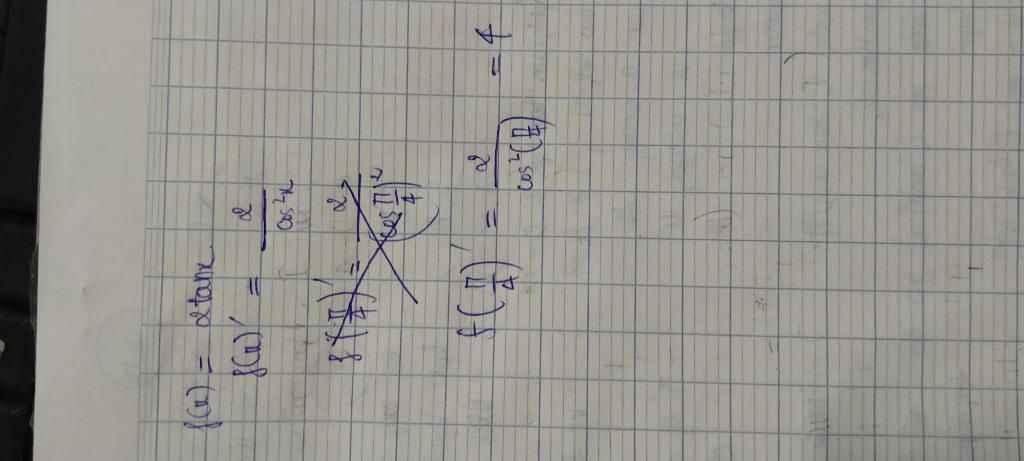 f(x) = 2tanx
f(x)' = 2/cos²x
f(π/4)' = 2/(cos π/4)²
f(π/4)' = 2/cos²(π/4) = 4